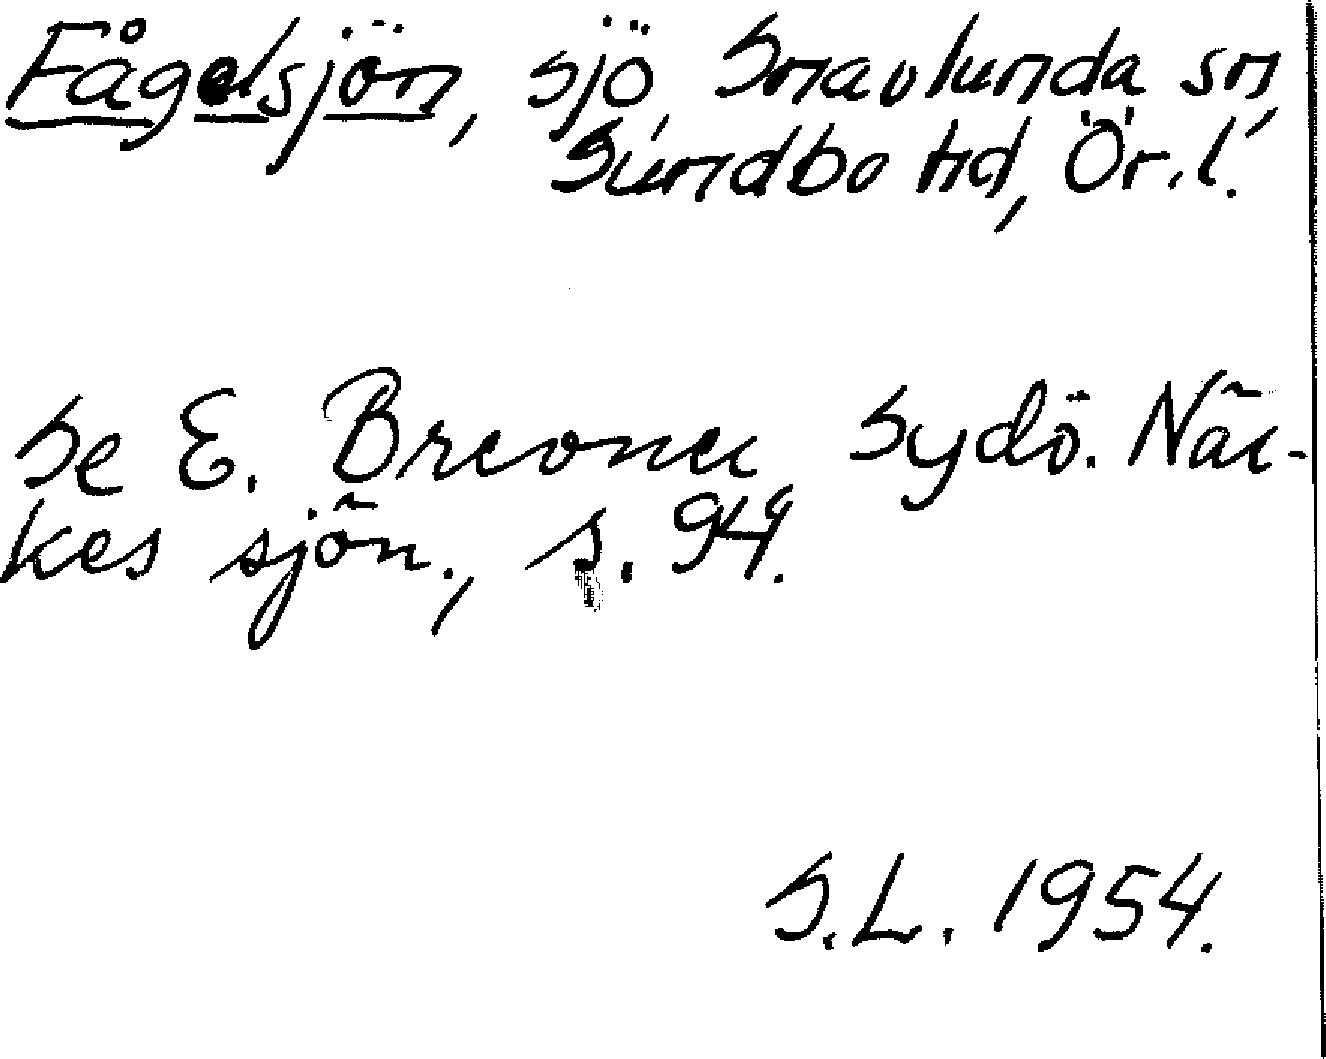 Fågelsjön, sjö, Snavlunda sn,
Sundbo hd, Ör. l.
Se E. Brevner Sydö. När-
kes sjön., s. 94.
S.L. 1954.